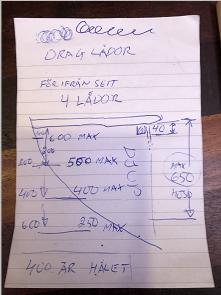 DRAG LÅDOR
FÖRIFRÅN SETT
4 LÅDOR
40
600 MAX
200
500 MAX
DJUP
MAX
650
HÖJD
400
400 MAX
600
250 MAX
400 ÄR HÅLET